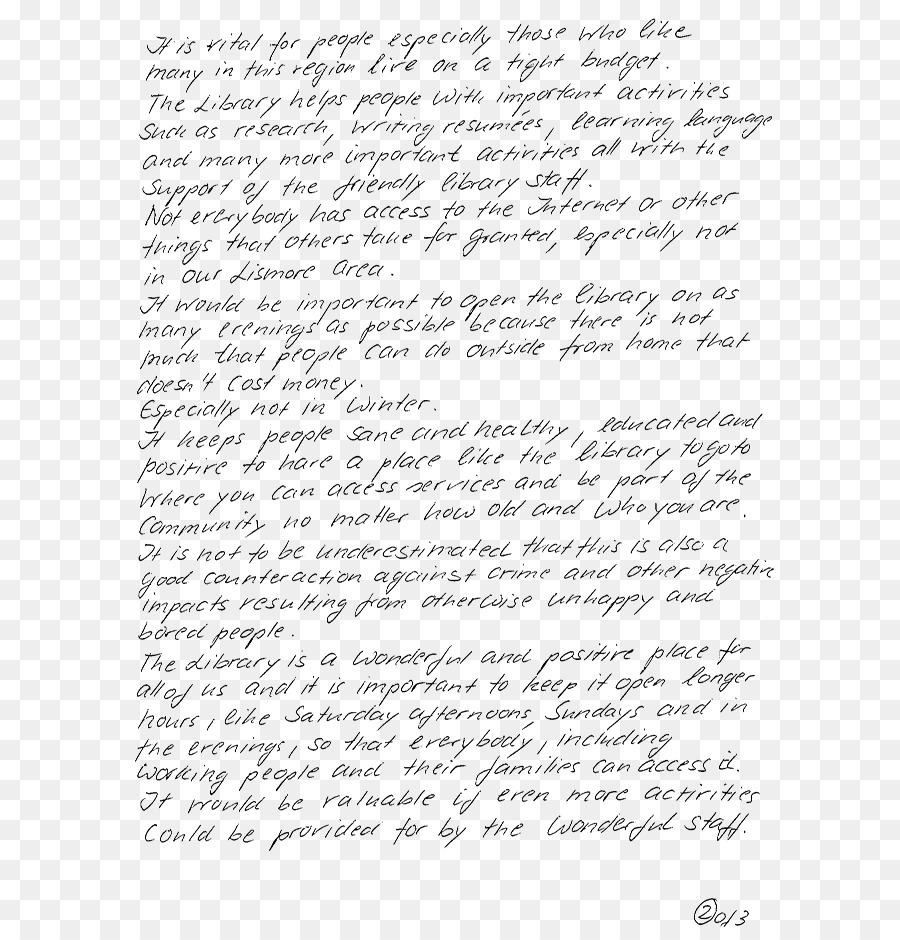 It is vital for people especially those who like
many in this region live on a tight budget.
The Library helps people with important activities
such as research, writing resumées, learning language
and many more important activities all with the
support of the friendly library staff.
Not everybody has access to the Internet or other
things that others take for granted, especially not
in our Lismore area.
It would be important to open the library on as
many evenings as possible because there is not
much that people can do outside from home that
doesn't cost money.
Especially not in Winter.
It keeps people sane and healthy, educated and
positive to have a place like the library to go to
where you can access services and be part of the
Community no matter how old and who you are.
It is not to be underestimated that this is also a
good counteraction against crime and other negative
impacts resulting from otherwise unhappy and
bored people.
The Library is a wonderful and positive place for
all of us and it is important to keep it open longer
hours, like Saturday afternoons, Sundays and in
the evenings, so that everybody, including
working people and their families can access it.
It would be valuable if even more activities
could be provided for by the wonderful staff.
2 of 3